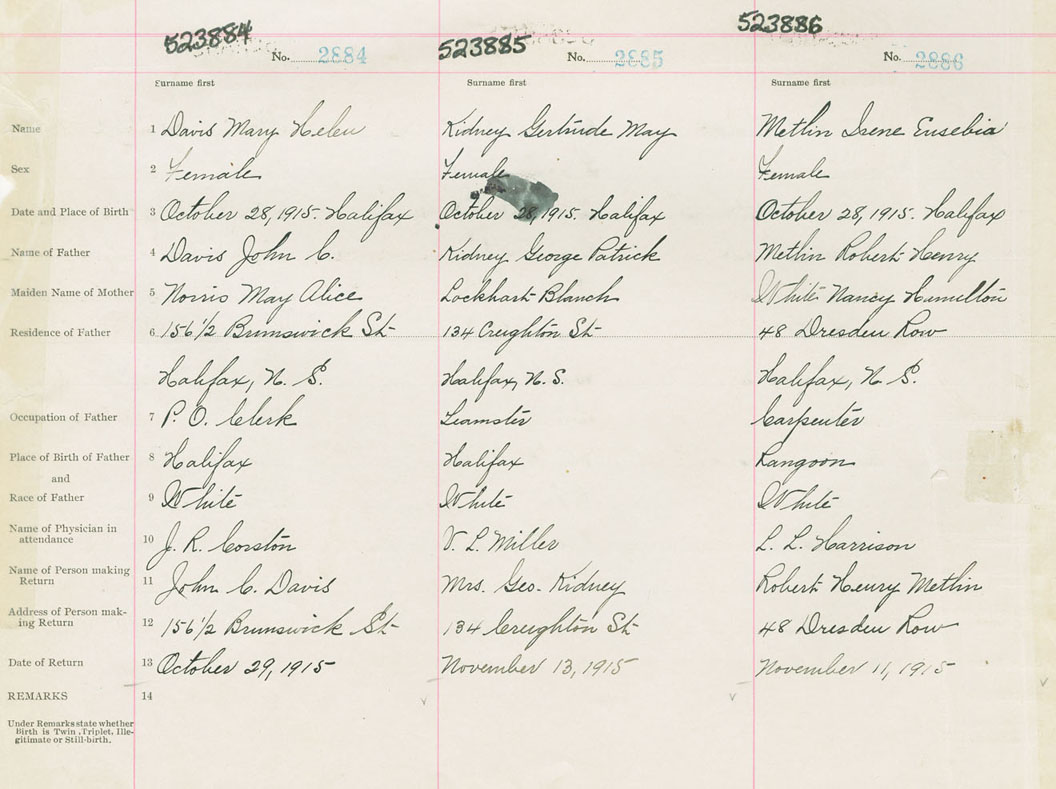 523884 523885 523886
No. 2884 No. 2885 No. 2886
Surname first Surname first Surname first
Name 1 Davis Mary Helen Kidney Gertrude May Metlin Irene Eusebia
Sex 2 Female Female Female
Date and Place of Birth 3 October 28, 1915. Halifax October 28, 1915. Halifax October 28, 1915. Halifax
Name of Father 4 Davis John C. Kidney George Patrick Metlin Robert Henry
Maiden Name of Mother 5 Norris May Alice Lockhart Blanch White Nancy Hamilton
Residence of Father 6. 156 1/2 Brunswick St 134 Creighton St 48 Dresden Row
Halifax, N. S. Halifax, N.S. Halifax, N S.
Occupation of Father 7 P. O. Clerk Teamster Carpenter
Place of Birth of Father 8 Halifax Halifax Rangoon
and
Race of Father 9 White White White
Name of Physician in
attendance 10 J. R. Corston V. L. Miller L. L. Harrison
Name of Person making
Return 11 John C. Davis Mrs. Geo. Kidney Robert Henry Metlin
Address of Person mak-
ing Return 12 156 1/2 Brunswick St 134 Creighton St 48 Dresden Row
Date of Return 13 October 29, 1915 November 13, 1915 November 11, 1915
REMARKS 14
Under Remarks state whether
Birth is Twin, Triplet, Ille-
gitimate or Still-birth.